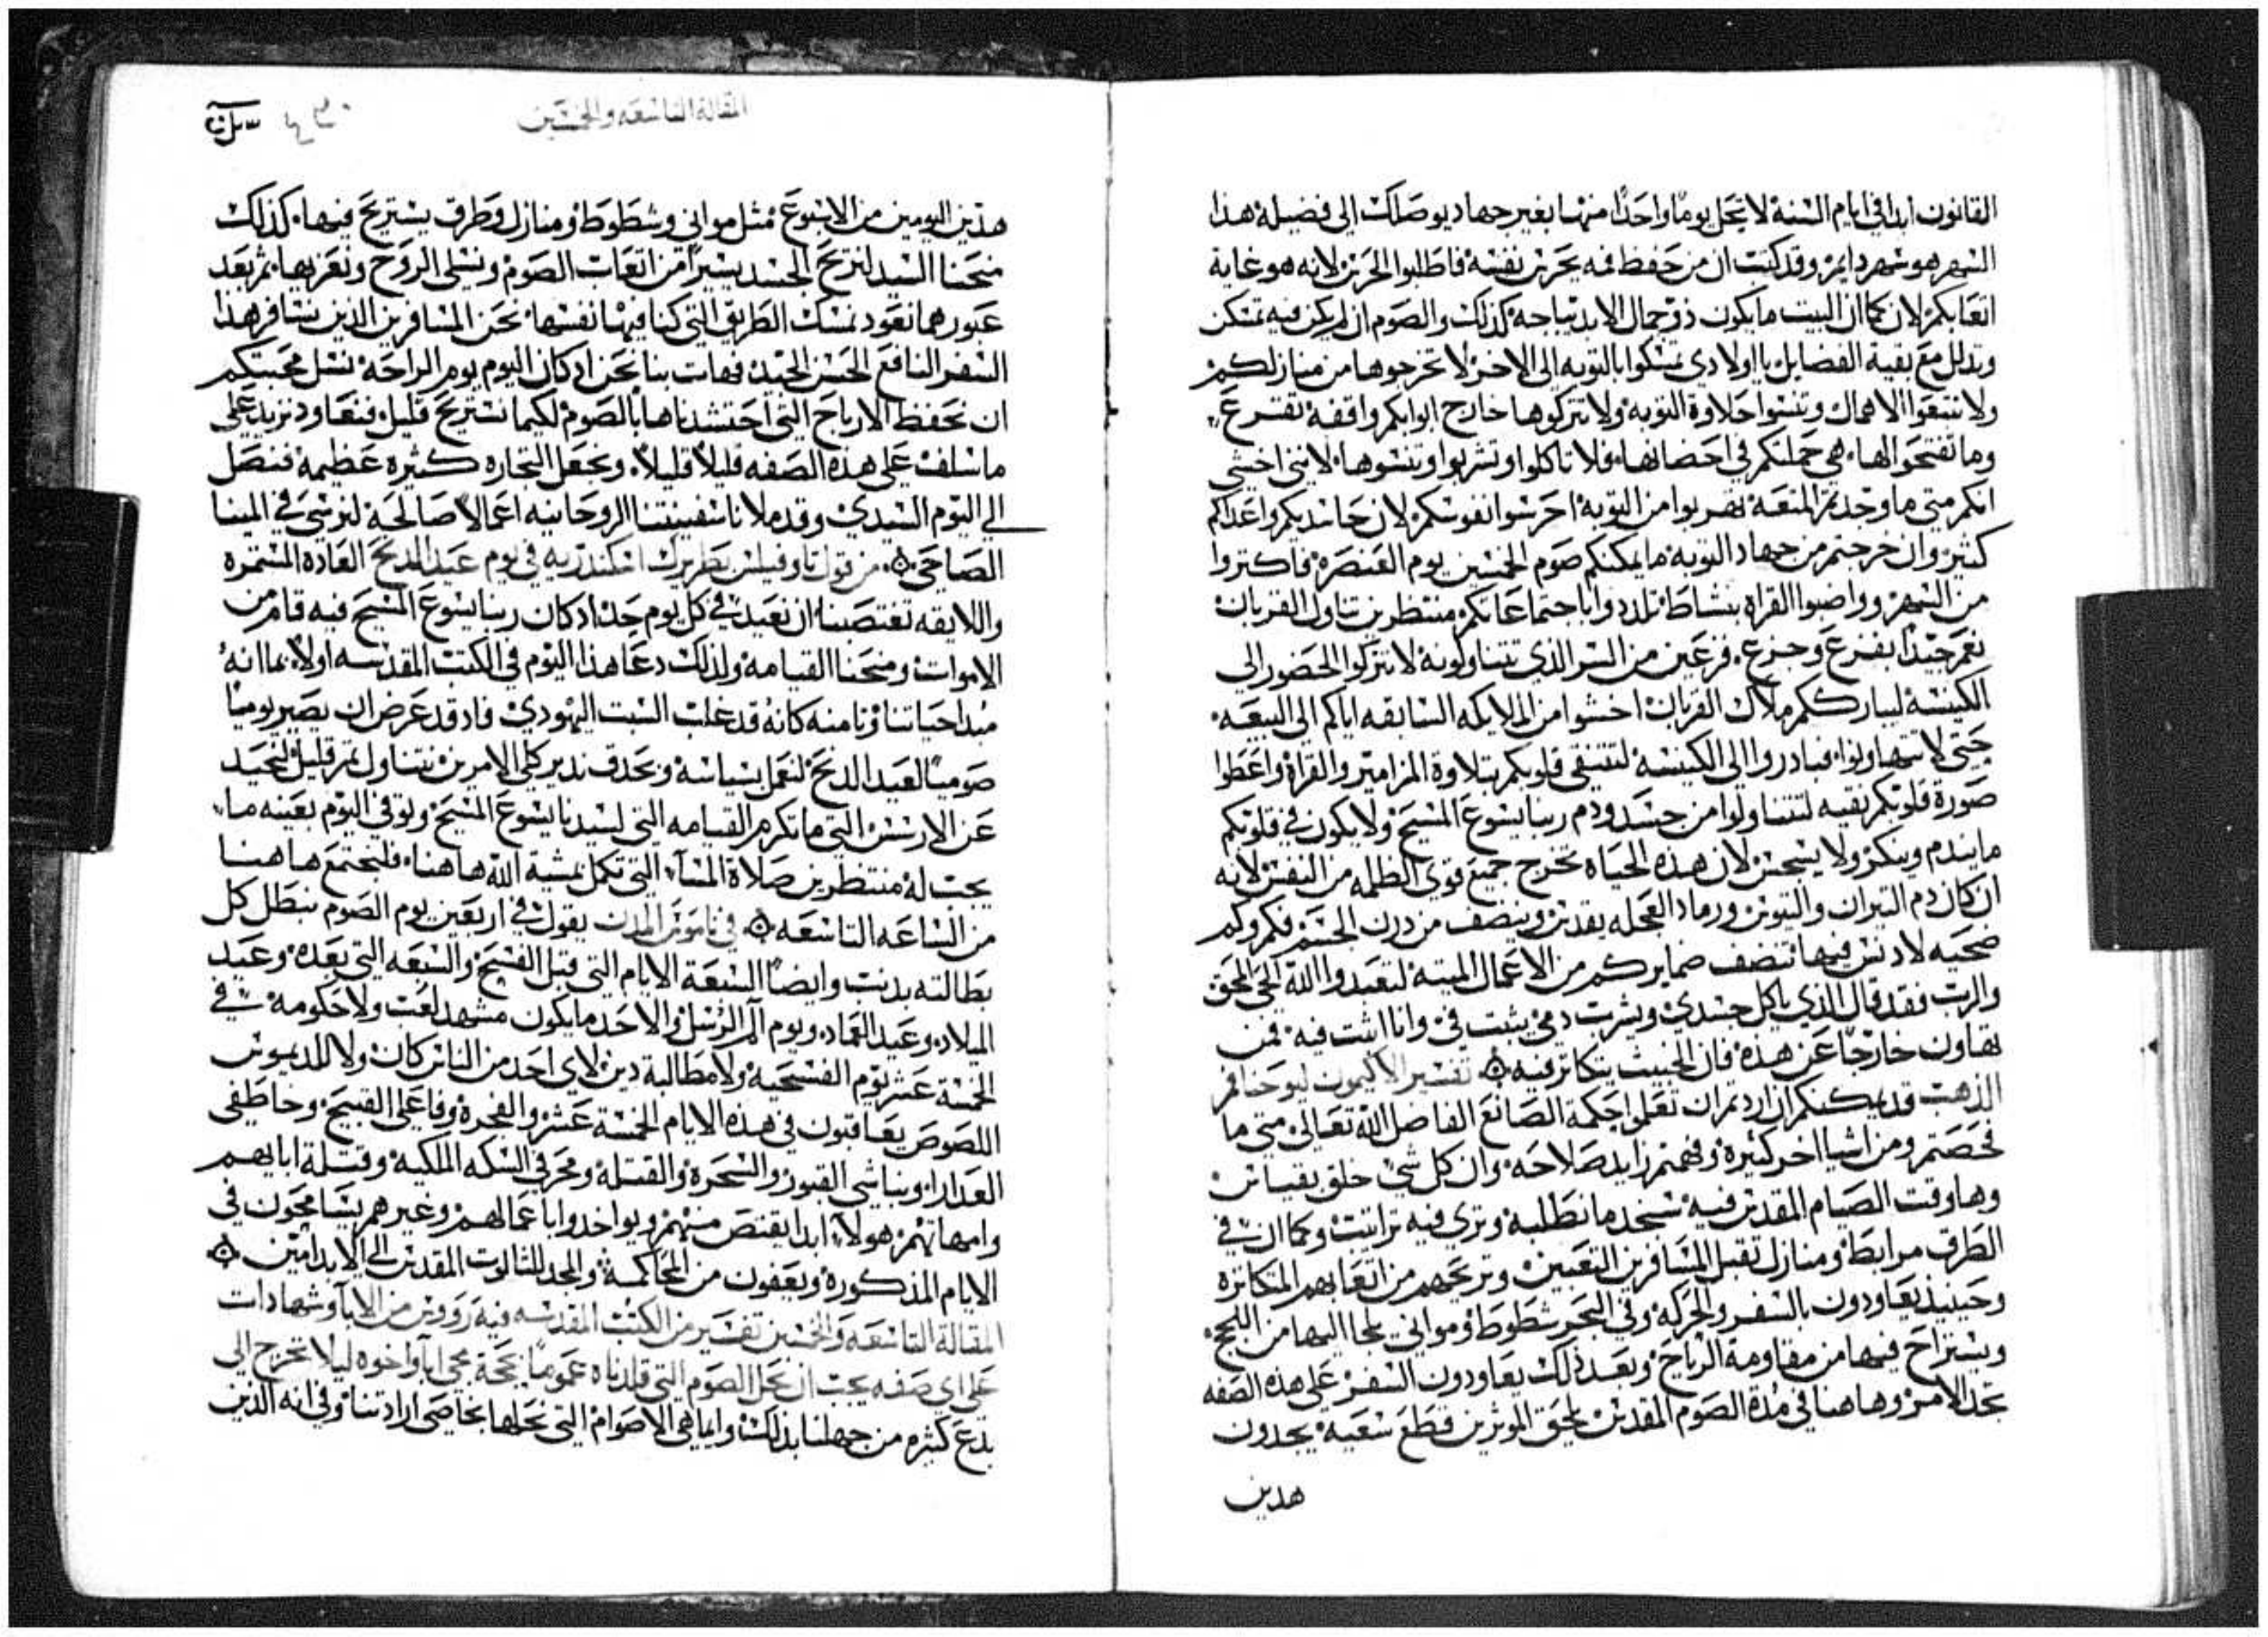 القانون ابدا في ايام السنة لا يحل يوما واحدا منها بغير جهاد يوصلك الى فضيلة هذا
الشهر هو شهر دايم وقد كتب ان من حفظ فمه يحرس نفسه فاطلبوا الحرس لانه هو غاية
اتعابكم لان كما ان البيت ما يكون ذو جمال الا بديباجه كذلك والصوم ان لم يكن فيه تمسكن
وتدلل مع بقية الفضايل يا اولادي تمسكوا بالتوبه الى الاخر لا تخرجوها من منازلكم
ولا تتبعوا الاهمال وتنسوا حلاوة التوبه ولا تتركوها خارج ابوابكم واقفه تقرع
وما تفتحوا لها هي حملتكم في احضانها فلا تاكلوا وتشربوا وتنسوها لانني اخشى
انكم متى ما وجدتم المنعه تهربوا من التوبه احرسوا نفوسكم لان حاسديكم واعداكم
كثير وان خرجتم من جهاد التوبه ما يمكنكم صوم الخمسين يوم العنصرة فاكثروا
من السهر وواضبوا القراه بنشاط ترددوا باجتماعاتكم منتظرين تناول القربان
نعم جيدا بفزع وجزع فزعين من السر الذي تتناولونه لا تتركوا الحضور الى
الكنيسة ليبارككم ملاك القربان اخشوا من الملايكه السابقه اياكم الى البيعه
حتى لا تتهاونوا فبادروا الى الكنيسه لتتنقى قلوبكم بتلاوة المزامير والقراة واعطوا
صورة قلوبكم نقيه لتتناولوا من جسد ودم ربنا يسوع المسيح ولا يكون في قلوبكم
ما يندم وينكر ولا يسجس لان هذه الحياه تخرج جميع قوى الظلمه من النفس لانه
ان كان دم التيران والتيوس ورماد العجله يقدس وينضف من درن الجسم فكم وكم
ضحيه لا دنس فيها تنضف ضمايركم من الاعمال الميته لتعبدوا الله الحي المحق
والرب فقد قال الذي ياكل جسدي ويشرب دمي يثبت في وانا اثبت فيه فمن
تهاون خارجا عن هذه فان الخبيث يتكاثر فيه تفسير الاكيمون ليوحنا فم
الذهب قد يمكنكم ان اردتم ان تعلموا حكمة الصانع الفاضل الله تعالى متى ما
فحصتم ومن اشيا اخر كثيرة وفهمتم زايد صلاحه وان كل شي خلق بقياس
وها وقت الصيام المقدس فيه ستجد ما نطلبه وترى فيه تراتيب وكما ان في
الطرق مرابط ومنازل تقبل المسافرين التعبين وتريحهم من اتعابهم المتكاثرة
وحينيذ يعاودون بالسفر والحركه وفي البحر شطوط ومواني يلجا اليها من اللجج
ويستراح فيها من مقاومة الرياح وبعد ذلك يعاودون السفر على هذه الصفه
تجد الامر وهاهنا في مدة الصوم المقدس يلحق الموثرين قطع سعيه يجدون
هدين
المقالة التاسعه والخمسين
هذين اليومين من الاسبوع مثل مواني وشطوط ومنازل وطرق يستريح فيها كذلك
منحنا السيد لنريح الجسد يسيرا من اتعاب الصوم ونسلي الروح ونعزيها ثم بعد
عبورهما نعود نمسك الطريق التي كنا فيها نفسها نحن المسافرين الذين نسافر هذا
السفر النافع الحسن الجيد فهات بنا نحن اد كان اليوم يوم الراحه نسل محبتكم
ان نحفظ الارباح التي احتشدناها بالصوم لكيما نستريح قليل فنعاود نزيد على
ما سلف على هذه الصفه قليلا قليلا ونجعل التجاره كثيره عظيمة فنصل
الى اليوم السيدي وقد ملانا سفينتنا الروحانيه اعمالا صالحة لنرسي في المينا
الصاحي من قول تاوفيلس بطريرك اسكندريه في يوم عيد الدنح العادة المستمرة
واللايقه تغتصبنا ان نعيد في كل يوم حد اد كان ربنا يسوع المسيح فيه قام من
الاموات ومنحنا القيامه ولذلك دعا هذا اليوم في الكتب المقدسه اولا بما انه
مبدا حياتنا وثامنه كانه قد غلب السبت اليهودي فاد قد عرض ان يصير يوميا
صوميا لعيد الدنح لنعمل بسياسة وبحدق ندبر كلي الامرين نتناول تمر قليل لنحيد
عن الارسس التي ما تكرم القيامه التي لسيدنا يسوع المسيح ونوفي اليوم بعينه ما
يجب له منتظرين صلاة المسآ التي تكمل بمشية الله هاهنا فلنجتمع هاهنا
من الساعه التاسعه في ناموس المدن يقول في اربعين يوم الصوم نبطل كل
بطالته بدنب وايضا السبعة الايام التي قبل الفسح والسبعه التي بعده وعيد
الميلاد وعيد العماد ويوم آلم الرسل والاحد ما يكون مشهد لعب ولا حكومة في
الخمسة عشر يوم الفسحيه ولا مطالبة دين لاي احد من الناس كان ولا المديوس
اللصوص يعاقبون في هذه الايام الخمسة عشر والفجرة وفاعلى القبيح وخاطفي
العدارا ونباشي القبور والسحرة والقتلة ومحرفي السكه الملكية وقتلة ابايهم
وامهاتهم هولاء ابدا يقتص منهم ويواخدوا باعمالهم وغيرهم يسامحون في
الايام المذكورة ويعفون من المحاكمة والمجد للثالوت المقدس الى الابد امين
المقالة التاسعه والخمسين تفسير من الكتب المقدسه فيه رووس من الابآ وشهادات
على اي صفه يجب ان نحل الصوم التي قلدناه عموما بحجة مجي ابآ واخوه ليلا تخرج الى
بدع كثيره من جهلنا بذلك وايما هي الاصوام التي نحلها بخاصي ارادتنا وفي انه الذين